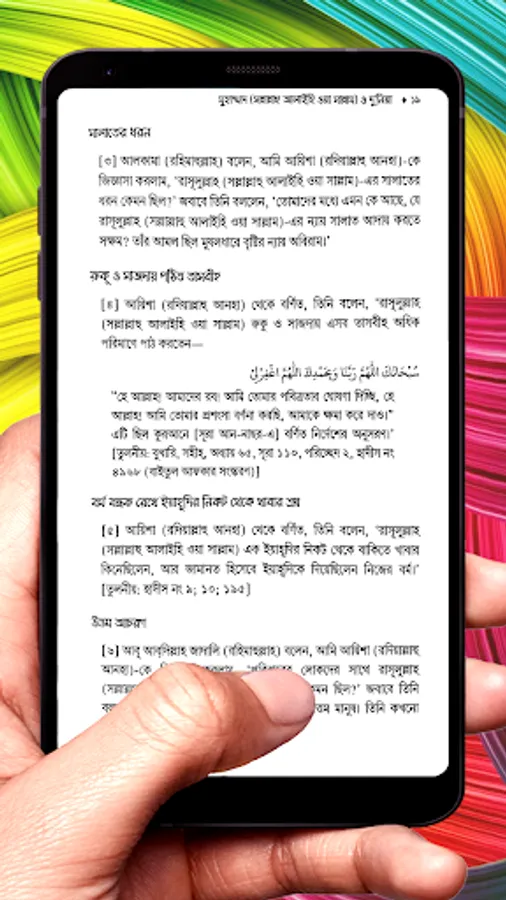 মুহাম্মাদ (সল্লাল্লাহু আলাইহি ওয়া সাল্লাম) ও দুনিয়া ♦ ১৯
সালাতের ধরন
[৩] আলকামা (রহিমাহুল্লাহ) বলেন, আমি আয়িশা (রদিয়াল্লাহু আনহা)-কে
জিজ্ঞাসা করলাম, ‘রাসূলুল্লাহ (সল্লাল্লাহু আলাইহি ওয়া সাল্লাম)-এর সালাতের
ধরন কেমন ছিল?’ জবাবে তিনি বললেন, ‘তোমাদের মধ্যে এমন কে আছে, যে
রাসূলুল্লাহ (সল্লাল্লাহু আলাইহি ওয়া সাল্লাম)-এর ন্যায় সালাত আদায় করতে
সক্ষম? তাঁর আমল ছিল মুষলধারে বৃষ্টির ন্যায় অবিরাম।’
রুকূ ও সাজদায় পঠিত তাসবীহ
[৪] আয়িশা (রদিয়াল্লাহু আনহা) থেকে বর্ণিত, তিনি বলেন, ‘রাসূলুল্লাহ
(সল্লাল্লাহু আলাইহি ওয়া সাল্লাম) রুকূ ও সাজদায় এসব তাসবীহ অধিক
পরিমাণে পাঠ করতেন—
سُبْحَانَكَ اللّٰهُمَّ رَبَّنَا وَبِحَمْدِكَ اللّٰهُمَّ اغْفِرْلِيْ
“হে আল্লাহ! আমাদের রব! আমি তোমার পবিত্রতার ঘোষণা দিচ্ছি, হে
আল্লাহ! আমি তোমার প্রশংসা বর্ণনা করছি, আমাকে ক্ষমা করে দাও।”
এটি ছিল কুরআনে [সূরা আন-নাছর-এ] বর্ণিত নির্দেশের অনুসরণ।’
[তুলনীয়: বুখারি, সহীহ, অধ্যায় ৬৫, সূরা ১১০, পরিচ্ছেদ ২, হাদীস নং
৪৯৬৮ (বাইতুল আফকার সংস্করণ)]
বর্ম বন্ধক রেখে ইয়াহূদির নিকট থেকে খাবার ক্রয়
[৫] আয়িশা (রদিয়াল্লাহু আনহা) থেকে বর্ণিত, তিনি বলেন, ‘রাসূলুল্লাহ
(সল্লাল্লাহু আলাইহি ওয়া সাল্লাম) এক ইয়াহূদির নিকট থেকে বাকিতে খাবার
কিনেছিলেন, আর জামানত হিসেবে ইয়াহূদিকে দিয়েছিলেন নিজের বর্ম।’
[তুলনীয়: হাদীস নং ৯; ১০; ১৯৫]
উত্তম আচরণ
[৬] আবূ আবদিল্লাহ জাদালি (রহিমাহুল্লাহ) বলেন, আমি আয়িশা (রদিয়াল্লাহু
আনহা)-কে লোকদের সাথে রাসূলুল্লাহ
(সল্লাল্লাহু কেমন ছিল?’ জবাবে তিনি
মানুষ। তিনি কখনো